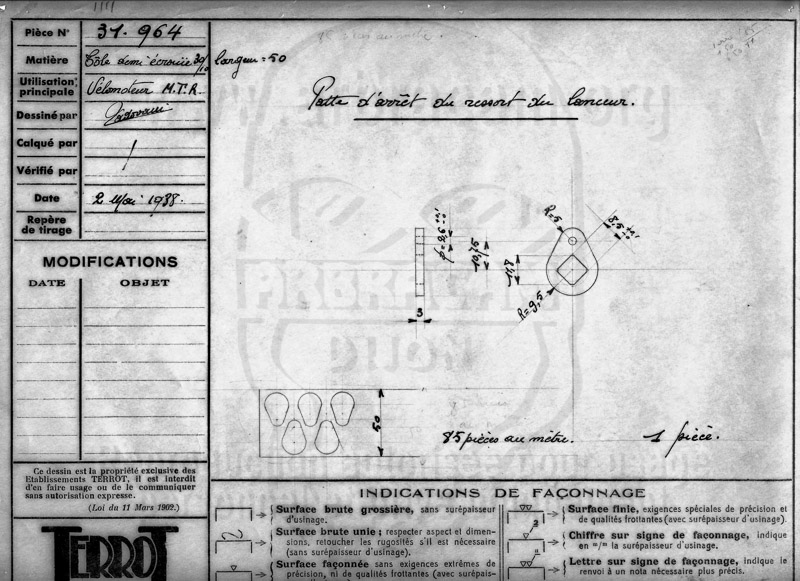 Pièce N° 31.964
Matière Tôle demi écrouie 30/10 largeur = 50
Utilisation principale Vélomoteur M.T.R.
Dessiné par
Calqué par
Vérifié par
Date 2 Mai 1938.
Repère de tirage
MODIFICATIONS
DATE OBJET
Ce dessin est la propriété exclusive des
Etablissements TERROT, il est interdit
d'en faire usage ou de le communiquer
sans autorisation expresse.
(Loi du 11 Mars 1902.)
TERROT
Patte d'arrêt du ressort du lanceur.
10,75
11,8
R=5
8,5
R=9,5
3
50
85 pièces au mètre.
1 pièce.
INDICATIONS DE FAÇONNAGE
Surface brute grossière, sans surépaisseur
d'usinage.
Surface brute unie; respecter aspect et dimen-
sions, retoucher les rugosités s'il est nécessaire
(sans surépaisseur d'usinage).
Surface façonnée sans exigences extrêmes de
précision, ni de qualités frottantes (avec surépais-
Surface finie, exigences spéciales de précision et
de qualités frottantes (avec surépaisseur d'usinage).
Chiffre sur signe de façonnage, indique
en m/m la surépaisseur d'usinage.
Lettre sur signe de façonnage, indique le
renvoi à un nota nécessaire plus précis.